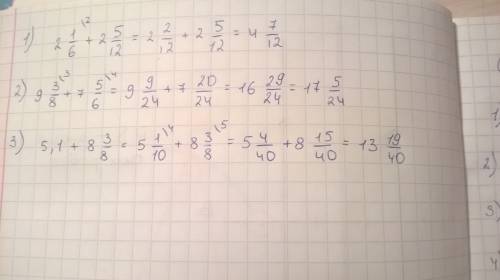 1) 2 1/6 \2 + 2 5/12 = 2 2/12 + 2 5/12 = 4 7/12
2) 9 3/8 \3 + 7 5/6 \4 = 9 9/24 + 7 20/24 = 16 29/24 = 17 5/24
3) 5,1 + 8 3/8 = 5 1/10 \4 + 8 3/8 \5 = 5 4/40 + 8 15/40 = 13 19/40
1)
2)
3)
4